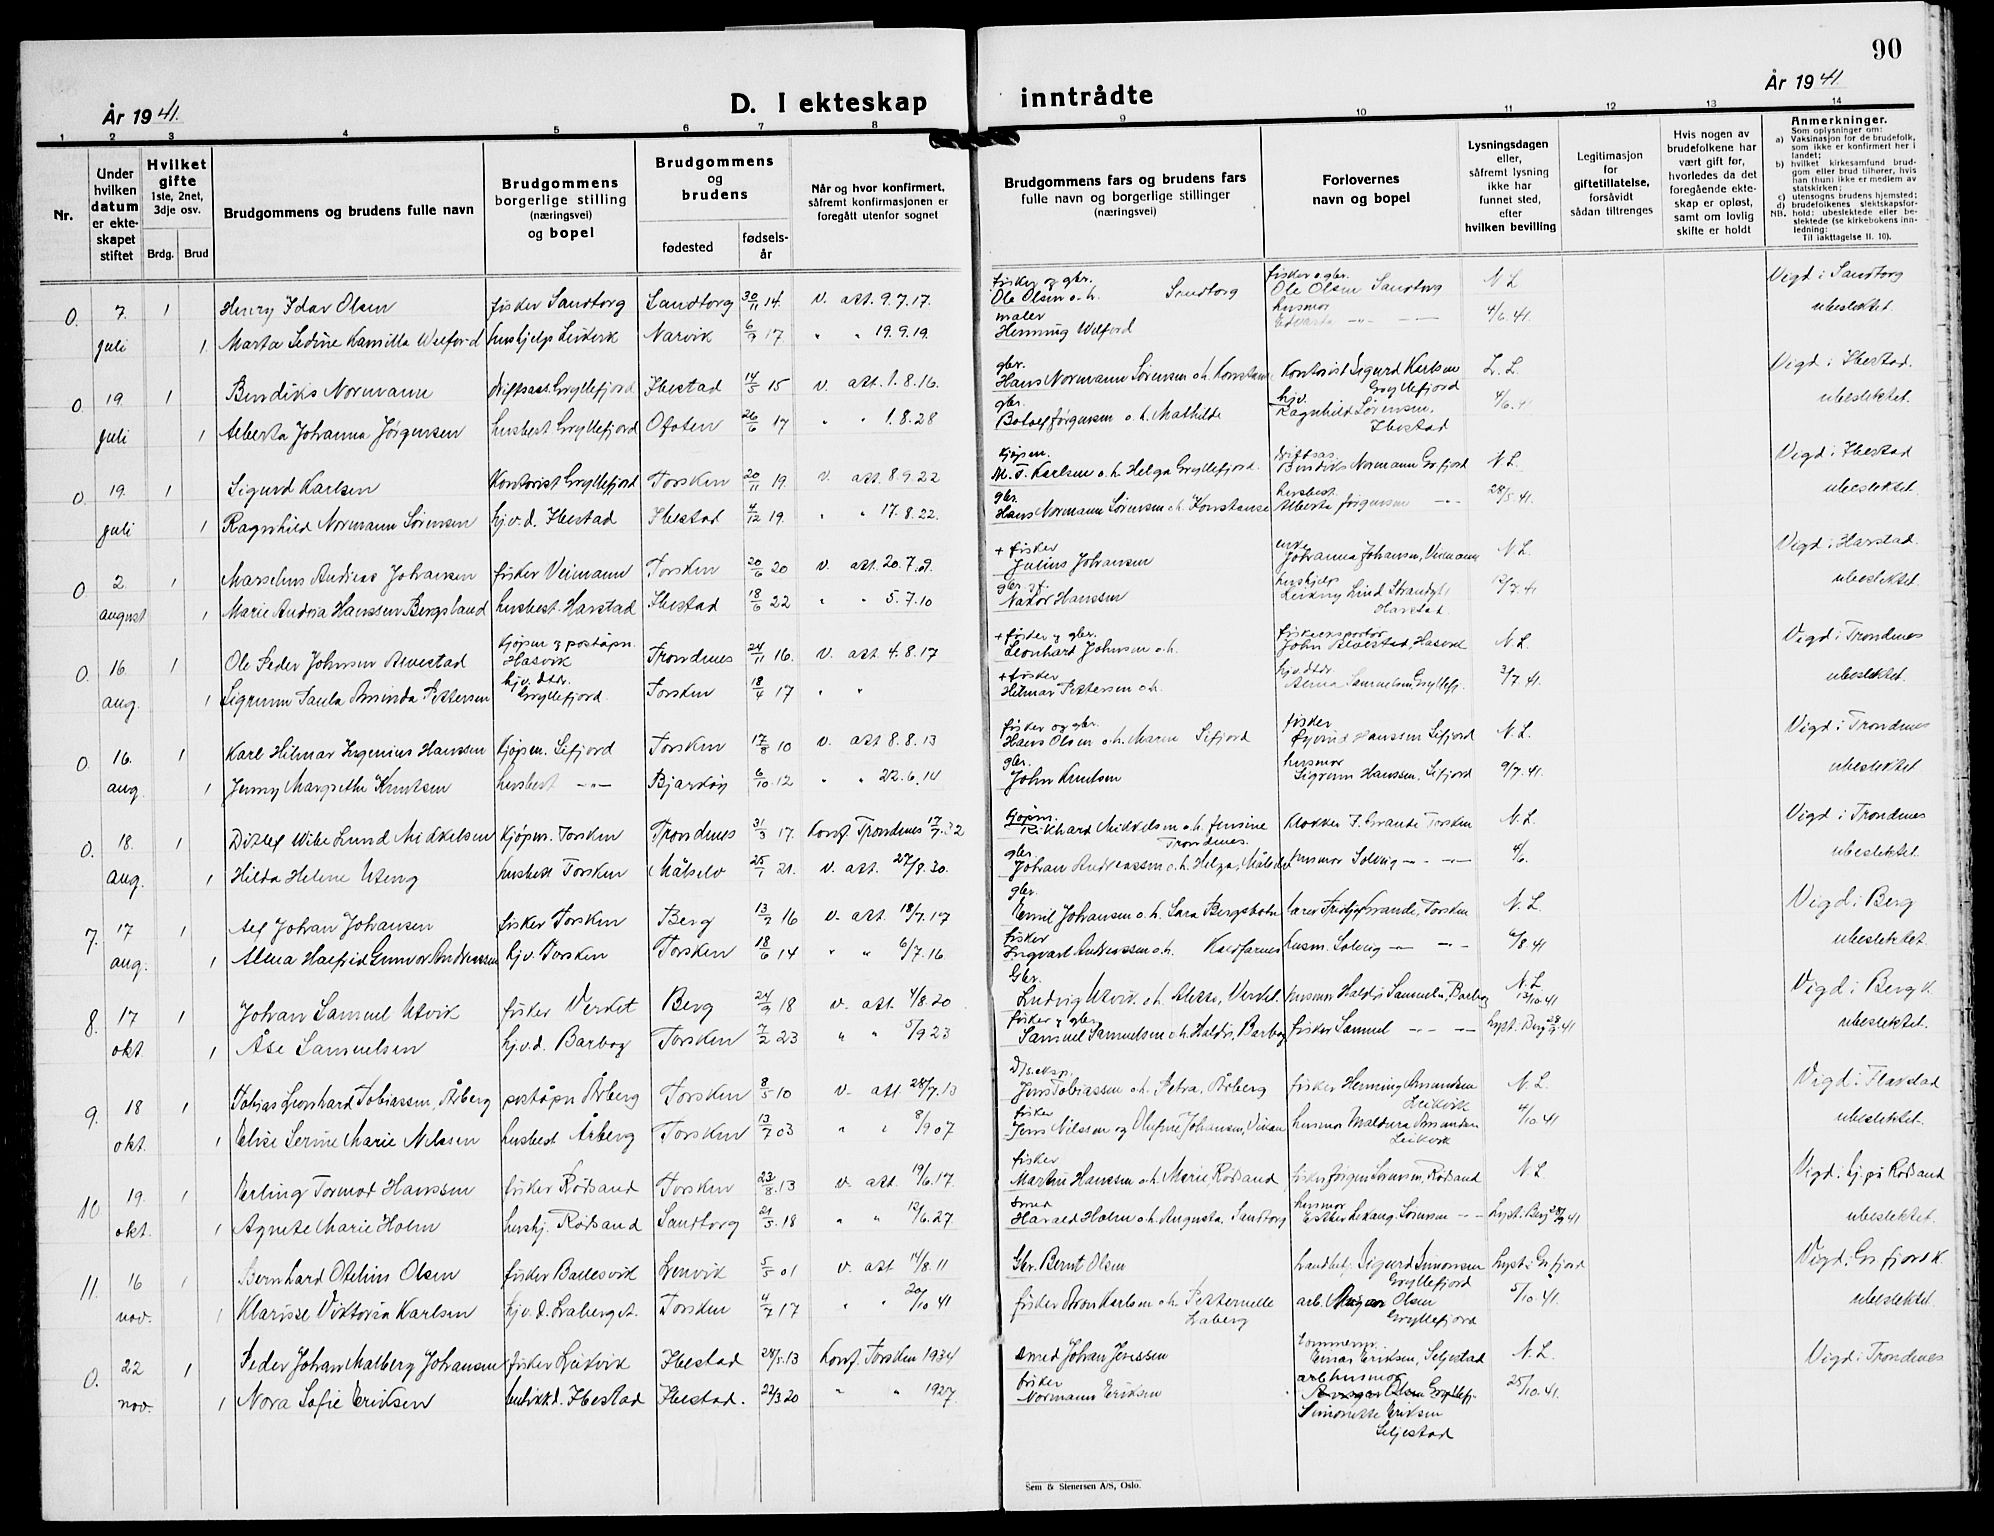 90
År 1941.
D. I ekteskap inntrådte
År 1941
1 2 3 4 5 6 7 8 9 10 11 12 13 14
Nr.
Under hvilken datum er ekteskapet stiftet
Hvilket gifte 1ste, 2net, 3dje osv.
Brdg. Brud
Brudgommens og brudens fulle navn
Brudgommens borgerlige stilling (næringsvei) og bopel
Brudgommens og brudens
fødested
fødselsår
Når og hvor konfirmert, såfremt konfirmasjonen er foregått utenfor sognet
Brudgommens fars og brudens fars fulle navn og borgerlige stillinger (næringsvei)
Forlovernes navn og bopel
Lysningsdagen eller, såfremt lysning ikke har funnet sted, efter hvilken bevilling
Legitimasjon for giftetillatelse, forsåvidt sådan tiltrenges
Hvis nogen av brudefolkene har vært gift før, hvorledes da det foregående ekteskap er opløst, samt om lovlig skifte er holdt
Anmerkninger.
Som oplysninger om:
a) Vaksinasjon for de brudefolk, som ikke er konfirmert her i landet;
b) hvilket kirkesamfund brudgom eller brud tilhører, hvis han (hun) ikke er medlem av statskirken;
c) utensogns brudens hjemsted;
d) brudefolkenes slektskapsforhold: ubeslektede eller beslektede (se kirkebokens innledning:
NB. Til iakttagelse II. 10).
fisker og gbr. fisker o gbr.
0. 7. 1 Henry Idar Olsen fisker Sandtorg Sandtorg 30/11 14. v. att. 9.7.17. Ole Olsen o.h. Sandtorg Ole Olsen Sandtorg N L Vigd i Sandtorg
maler husmor
juli 1. Marta Sedine Kamilla Welford hushjelp Leikvik Narvik 6/9 17 " " 19.9.19. Henning Welford Edvarda -"- 4/6.41. ubeslektet.
gbr.
0. 19. 1 Bendiks Normann Driftsass. Gryllefjord Ibestad 14/5 15 v. att. 1.8.16. Hans Normann Sørensen o.h. Konstanse Kontorist Sigurd Karlsen Gryllefjord L. L. Vigd i Ibestad.
gbr. hjv.
juli 1 Alberta Johanna Jørgensen husbest. Gryllefjord Ofoten 26/6 17 " " 1.8.28 Botolf Jørgensen o.h. Mathilde Ragnhild Sørensen, Ibestad 4/6.41 ubeslektet.
kjøpm.
0. 19. 1 Sigurd Karlsen Kontorist Gryllefjord Torsken 20/11 19. v. att. 8.9.22 M. T. Karlsen o.h. Helga Gryllefjord. Bendiks Normann Grfjord N L. Vigd i Ibestad
gbr. husbest.
juli 1 Ragnhild Normann Sørensen hj.v.d. Ibestad Ibestad 4/12 19. " " 17.8.22. Hans Normann Sørensen o.h. Konstanse Alberta Jørgensen -"- 28/5.41. ubeslektet.
+ fisker enke
0 2. 1 Marselius Andreas Johansen fisker Veimann Torsken 20/6 20 v. att. 20.7.9. Julius Johansen Johanna Johansen, Veimann N L. Vigd i Harstad.
hushjelp
august 1 Marie Andrea Hanssen Bergsland husbest. Harstad Ibestad 18/6 22 " " 5.7.10 Nador Hanssen Harstad 12/7.41 ubeslektet.
kjøpm og poståpn. + fisker og gbr. fiskeeksportør
0. 16. 1 Ole Peder Johnsen Alvestad Hasvik Trondenes 24/11 16. v. att. 4.8.17 Leonhard Johnsen o.h. John Alvestad, Hasvik N L. Vigd i Trondenes
hj.v. dtr. + fisker hjv dtr.
aug. 1 Sigrunn Paula Aminda Pettersen Gryllefjord. Torsken 18/4 17 " " Hilmar Pettersen o.h. Samuelsen Gryllefj. 3/7.41. ubeslektet.
fisker og gbr. fisker
0. 16. 1 Karl Hilmar Ingenius Hanssen Kjøpm. Sifjord Torsken 17/8 10 v. att 8.8.13 Hans Olsen o.h. Maren Sifjord Øyvind Hanssen Sifjord N. L. Vigd i Trondenes
gbr. husmor
aug. 1 Jenny Margrethe Knutsen husbest -"- Bjarkøy 6/10.12 " " 22.6.14 John Knutsen Sigrunn Hanssen, Sifjord 9/7.41. ubeslektet.
kjøpm.
0. 18. 1 Ditlef Wibe Lund Mikkelsen kjøpm. Torsken Trondenes 31/3 17. Konf. Trondenes 17/7.32 Rikhard Mikkelsen o.h. Jensine Trondenes. Klokker J. Grande Torsken N. L. Vigd i Trondenes
gbr.
aug. 1 Hilda Helene Uteng husbest Torsken Målselv 25/1 21. v. att. 27/8.30. Johan Andreassen o.h. Helga, Målselv husmor Solveig -"- -"- 4/6. ubeslektet.
gbr.
7. 17 1 Alf Johan Johansen fisker Torsken Berg 13/7 16 v. att. 18/7.17 Emil Johansen o.h. Sara Bergsbotn lærer Fridtjof Grande, Torsken N. L. Vigd i Berg
fisker
aug. 1 Alma Halfrid Gunvor Andreassen hj.v. Torsken Torsken 18/6 14 " " 6/7.16. Ingvart Andreassen o.h. Kaldfarnes husm. Solveig -"- -"- 6/8 41 ubeslektet.
Gbr.
8. 17 1 Johan Samuel Utvik fisker Verket Berg 24/9 18 v. att 4/8.20 Ludvig Utvik o.h. Aletta, Verket. husmor Haldis Samuelsen, Barbog N. L. 13/10 41 Vigd i Berg k.
fisker og gbr.
okt. 1 Åse Samuelsen hj.v.d. Barbog Torsken 7/2 23 " " 5/9 23 Samuel Samuelsen o.h. Haldis, Barbog fisker Samuel -"- -"- Lyst. Berg 28/9 41 ubeslektet.
D/s.eksp.
9. 18 1 Tobias Leonhard Tobiassen, Årberg poståpn Årberg Torsken 8/5 10 v. att 28/7.13 Jens Tobiassen o.h. Petra, Årberg fisker Henning Amandsen Leikvik N. L. Vigd i Flakstad
fisker
okt. 1 Elise Serine Marie Nilssen husbest Årberg Torsken 13/7 03 " " 8/9 07 Jens Nilssen og Olufine Johansen, husmor Maldura Amandsen Leikvik 4/10.41 ubeslektet.
fisker
10 19. 1 Erling Tormod Hanssen fisker Rødsand Torsken 23/8.13 v. att. 19/6.17. Martin Hanssen o.h. Marie Rødsand fisker Jørgen Sørensen, Rødsand N L. Vigd i hj. på Rødsand
smed husmor
okt. 1 Agnete Marie Holm hushj. Rødsand Sandtorg 21/5.18 " " 12/6.27. Harald Holm o.h. Augusta, Sandtorg Esther Sørensen -"- Lyst. Berg 28/9 41 ubeslektet.
11. 16 1 Bernhard Otelius Olsen fisker Ballesvik Lenvik 5/5 01 v. att 14/8.11 Gbr. Bernt Olsen handelsbetj. Sigurd Simonsen Gryllefjord Lyst i Grfjord Vigd i Grfjord k.
nov. 1 Klarisse Viktoria Karlsen hj.v.d. Laberget. Torsken 4/7 17 " " 20/10 41 fisker Aron Karlsen o.h. Petternelle Laberg arb. Olsen Gryllefjord 5/10.41. ubeslektet.
0. 22 1 Peder Johan Malberg Johansen fisker Leikvik Ibestad 28/5.13 Konf. Torsken 1934 smed Johan Jenssen Einar Eriksen, Seljestad N. L. Vigd i Trondenes
fisker arb husmor
nov. 1 Nora Sofie Eriksen Ibestad Ibestad. 22/3 20 " " 1927 Normann Eriksen Ansgar Olsen Gryllefj. 25/10.41.
Simonette Eriksen
Seljestad
Sem & Stenersen A/S, Oslo.